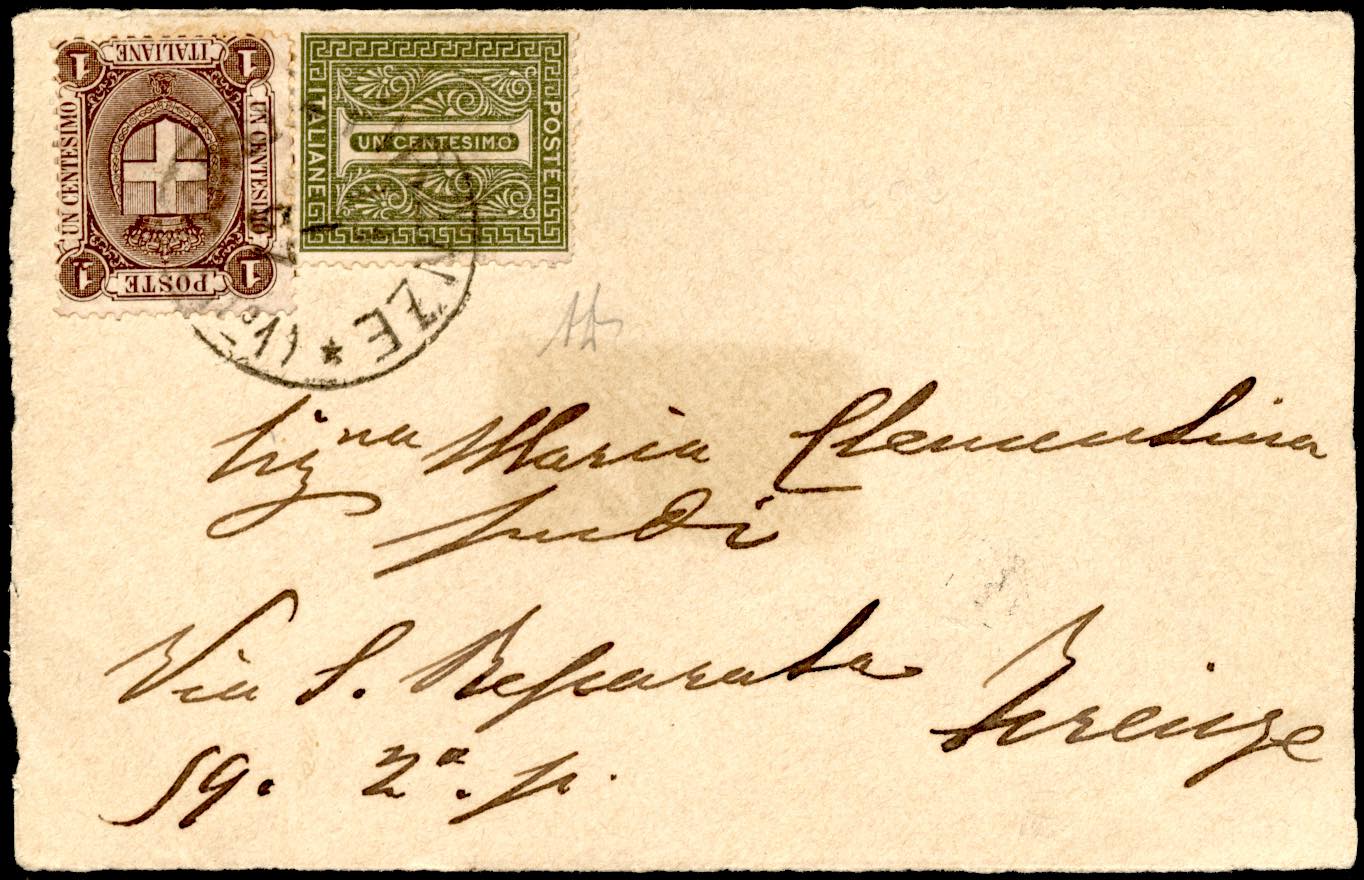 1 ITALIANE 1
UN CENTESIMO
UN CENTESIMO
1 POSTE 1
ITALIANE
UN CENTESIMO
POSTE
NZE ★
Sig.na Maria Clementina
Via S. Reparata Firenze
59. 2ª p.